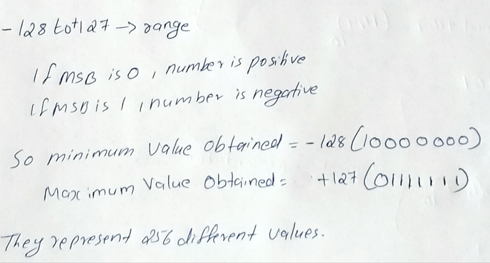 -128 to +127 → range
If MSB is 0, number is positive
If MSB is 1, number is negative
So minimum value obtained = -128 (10000000)
Maximum Value Obtained = +127 (01111111)
They represent 256 different values.